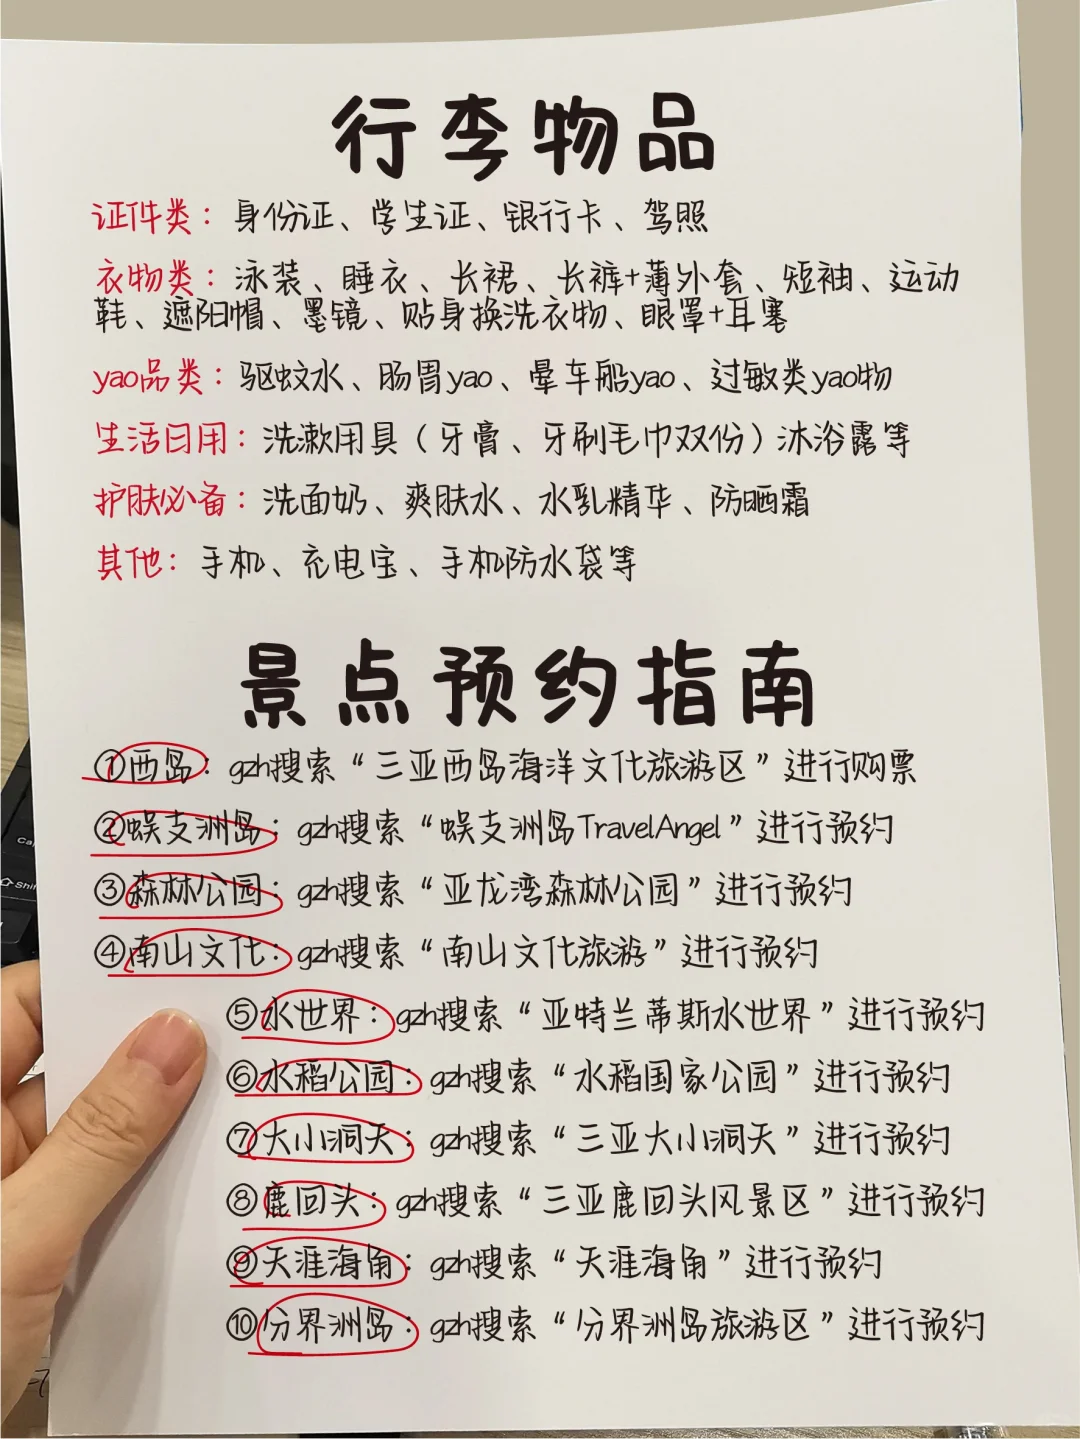 行李物品
证件类：身份证、学生证、银行卡、驾照
衣物类：泳装、睡衣、长裙、长裤+薄外套、短袖、运动
鞋、遮阳帽、墨镜、贴身换洗衣物、眼罩+耳塞
yao品类：驱蚊水、肠胃yao、晕车船yao、过敏类yao物
生活日用：洗漱用具（牙膏、牙刷毛巾双份）沐浴露等
护肤必备：洗面奶、爽肤水、水乳精华、防晒霜
其他：手机、充电宝、手机防水袋等
景点预约指南
①西岛：gzh搜索“三亚西岛海洋文化旅游区”进行购票
②蜈支洲岛：gzh搜索“蜈支洲岛TravelAngel”进行预约
③森林公园：gzh搜索“亚龙湾森林公园”进行预约
④南山文化：gzh搜索“南山文化旅游”进行预约
⑤水世界：gzh搜索“亚特兰蒂斯水世界”进行预约
⑥水稻公园：gzh搜索“水稻国家公园”进行预约
⑦大小洞天：gzh搜索“三亚大小洞天”进行预约
⑧鹿回头：gzh搜索“三亚鹿回头风景区”进行预约
⑨天涯海角：gzh搜索“天涯海角”进行预约
⑩分界洲岛：gzh搜索“分界洲岛旅游区”进行预约